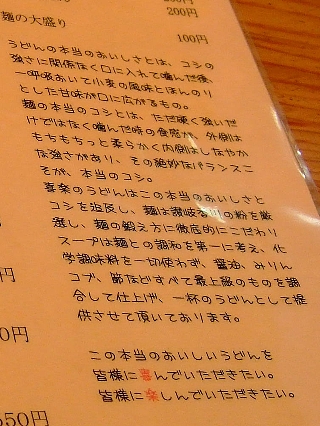 200円
麺の大盛り
100円
うどんの本当のおいしさとは、コシの
強さに関係なく口に入れて噛んだ後、
一呼吸おいて小麦の風味とほんのり
とした甘味が口に広がるもの。
麺の本当のコシとは、ただ硬く強いだ
けではなく噛んだ時の食感が、外側は
もちもちっと柔らかく内側はしなやか
な強さがあり、その絶妙なバランスこ
そが、本当のコシ。
喜楽のうどんはこの本当のおいしさと
コシを追及し、麺は讃岐香川の粉を厳
選し、麺の鍛え方に徹底的にこだわり
スープは麺との調和を第一に考え、化
学調味料を一切使わず、醤油、みりん
コブ、節などすべて最上級のものを調
合して仕上げ、一杯のうどんとして提
供させて頂いております。
この本当のおいしいうどんを
皆様に喜んでいただきたい。
皆様に楽しんでいただきたい。
円
0円
550円